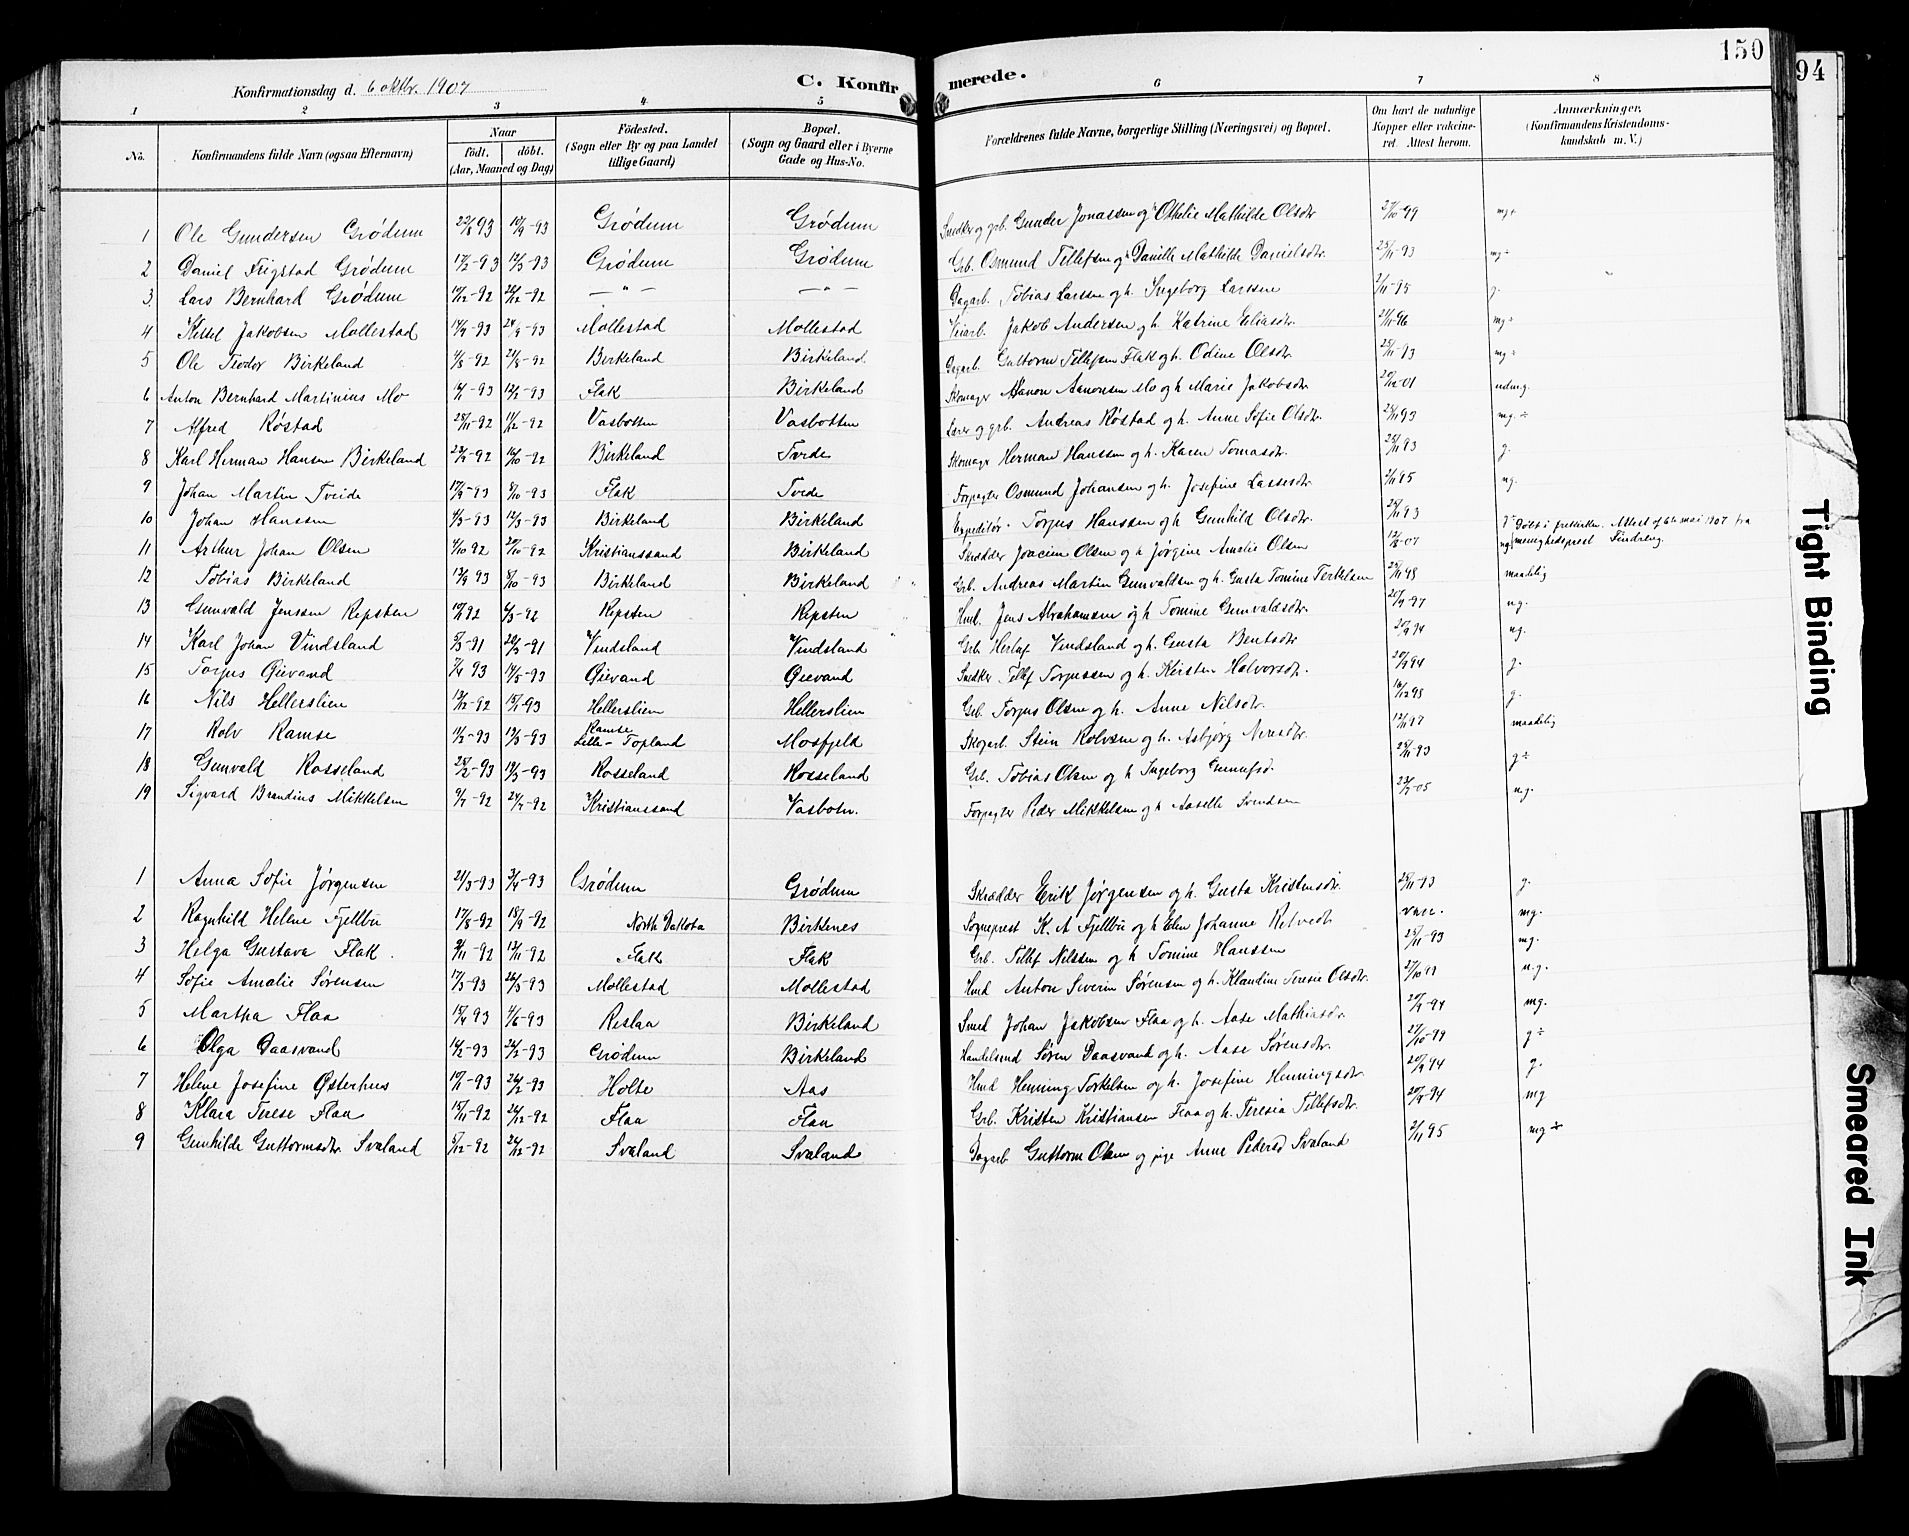 150
94
Konfirmationsdag d. 6 oktbr. 1907
C. Konfirmerede.
1 2 3 4 5 6 7 8
No. Konfirmandens fulde Navn (ogsaa Efternavn) Naar født. døbt. (Aar, Maaned og Dag) Fødested. (Sogn eller By og paa Landet tillige Gaard) Bopæl. (Sogn og Gaard eller i Byerne Gade og Hus-No. Forældrenes fulde Navne, borgerlige Stilling (Næringsvei) og Bopæl. Om havt de naturlige Kopper eller vakcineret. Attest herom. Anmærkninger. (Konfirmandens Kristendomskundskab m. V.)
1 Ole Gundersen Grødum 22/8 93 10/9-93 Grødum Grødum Snedker og grb. Gunder Jonassen og h Othelie Mathilde Olsdtr 27/10-99 mg+
2 Daniel Frigstad Grødum 17/2-93 12/3-93 Grødum Grødum Grb. Osmund Tellefsen og h Danille Mathilde Danielsdtr. 25/11-93 mg÷
3. Lars Bernhard Grødum 10/12-92 26/12-92 — " — — " — Dagarb. Tobias Larssen og h. Ingeborg Larssen 2/11-95 g.
4 Kittel Jakobsen Mollestad 14/9-93 24/9-93 Mollestad Mollestad Veiarb. Jakob Andersen og h. Katrine Eliasdtr. 21/11-96 mg÷
5 Ole Teodor Birkeland 1/8-92 21/8-92 Birkeland Birkeland. Dagarb. Guttorm Tellefsen Flak og h. Odine Olsdtr. 25/11-93 mg÷
6 Anton Bernhard Martinius Mo 14/1-93 12/2-93 Flak Birkeland Skomager Aanon Aanonsen Mo og h Marie Jakobsdtr. 20/12-01 udm.g.
7 Alfred Røstad 28/11-92 11/12-92 Vasbotten Vasbotten Lærer og grb. Andreas Røstad og h. Anne Sofie Olsdtr. 25/11 93 mg. ÷
8 Karl Herman Hansen Birkeland 22/9-92 16/10-92 Birkeland Tveide Skomager Herman Hanssen og h. Karen Tomasdtr. 25/11 93 g.
9 Johan Martin Tveide 17/9-93 8/10-93 Flak Tveide Forpagter Osmund Johansen og h. Josefine Lassesdtr. 2/11 95 ng.
10 Johan Hanssen 4/3-93 12/3-93 Birkeland Birkeland Expeditør. Torjus Hanssen og h Gunhild Olsdtr. 25/11 93
11 Arthur Johan Olsen 4/10 92 20/10-92 Kristianssand Birkeland Skrædder Joacim Olsen og h Jørgine Amalie Olsen 12/8-07 ng. Døbt i frikirken. Attest af 6te mai 1907 fra menighedsprest Sindreng.
12 Tobias Birkeland 13/9 93 8/10-93 Birkeland Birkeland Grb. Andreas Martin Gunvaldsen og h. Gusta Tomine Terkelsen maadelig
13 Gunvald Jenssen Repsten 6/3-92 Repsten Repsten Hmd. Jens Abrahamsen og h Tomine Gunvaldsdtr. 20/9-97 ng.
14 Karl Johan Vindsland 8/3-91 20/3-91 Vindsland Vindsland Grb Herlof Vindsland og h Gusta Bentsdtr 20/9 94 ng.
15 Torjus Øievand 7/4 93 14/5-93 Øievand Øievand Snedker Tellef Torjussen og h. Kirsten Halvorsdtr. 20/9 94 g.
16 Nils Hellerslien 13/12-92 15/1-93 Hellerslien Hellerslien Grb. Torjus Olsen og h. Anne Nilsdtr. g.
17 Rolv Ramse 11/2-93 19/3-93 Ramse Lille-Topland Mosfjeld Skogarb. Stein Rolvsen og h. Asbjørg maadelig
18 Gunvald Rosseland 28/2-93 19/3-93 Rosseland Rosseland Grb. Tobias Olsen og h Ingeborg 25/11-93 g÷
19 Sigvard Brandius Mikkelsen 9/7-92 24/7-92 Kristianssand Vasbotn. Forpagter Peder Mikkelsen og h Aaselle Svendsen 23/2-05 m.g.
1 Anna Sofie Jørgensen 21/3-93 3/4-93 Grødum Grødum Skrædder Erik Jørgensen og h. Gusta Kristensdtr. 25/11-93 g.
2 Ragnhild Helene Fjellbu 17/8-92 18/9-92 North Dakota Birkenes Sogneprest K. A Fjellbu og h Elen Johanne Retvedt vacc. mg.
3 Helga Gustava Flak. 3/11-92 13/11-92 Flak Flak Grb. Tellef Nilssen og h Tomine Hanssen 25/11-93 mg.
4 Sofie Amalie Sørensen 17/3-93 26/3-93 Mollestad Mollestad Hmd Anton Severin Sørensen og h. Klandine Teresie Olsdtr. 27/10 99 n.g.
5 Martha Flaa 15/4 93 4/6-93 Reslaa Birkeland Smed Johan Jakobsen Flaa og h. Aase Mathiasdtr. 20/9-94 mg.
6 Olga Daasvand 14/2-93 26/2-93 Grødum Birkeland Handelsmd Søren Daasvand og h. Aase Sørensdtr. 27/10-99 g÷
7 Helene Josefine Østerhus 10/1-93 26/2-93 Holte Aas Hmd Henning Torkelsen og h. Josefine Henningsdtr. 20/9 94 g.
8 Klara Terese Flaa 15/11-92 26/12-92 Flaa Flaa Grb. Kristen Kristiansen Flaa og h. Teresia Tellefsdtr. 20/9-94 mg
9 Gunhilde Guttormsdtr Svaland 8/12-92 26/12-92 Svaland Svaland Dagarb Guttorm Olsen og pige Anne Pedersd Svaland 2/11 95 mg ÷
Tight Binding
Smeared Ink